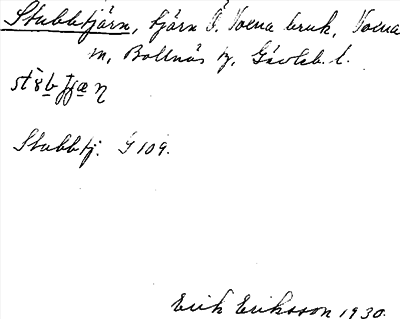 Stubbtjärn, tjärn Ö. Voxna bruk, Voxna
sn, Bollnäs tg, Gävleb. l.
Stubbtj. G 109.
Erik Eriksson 1930.